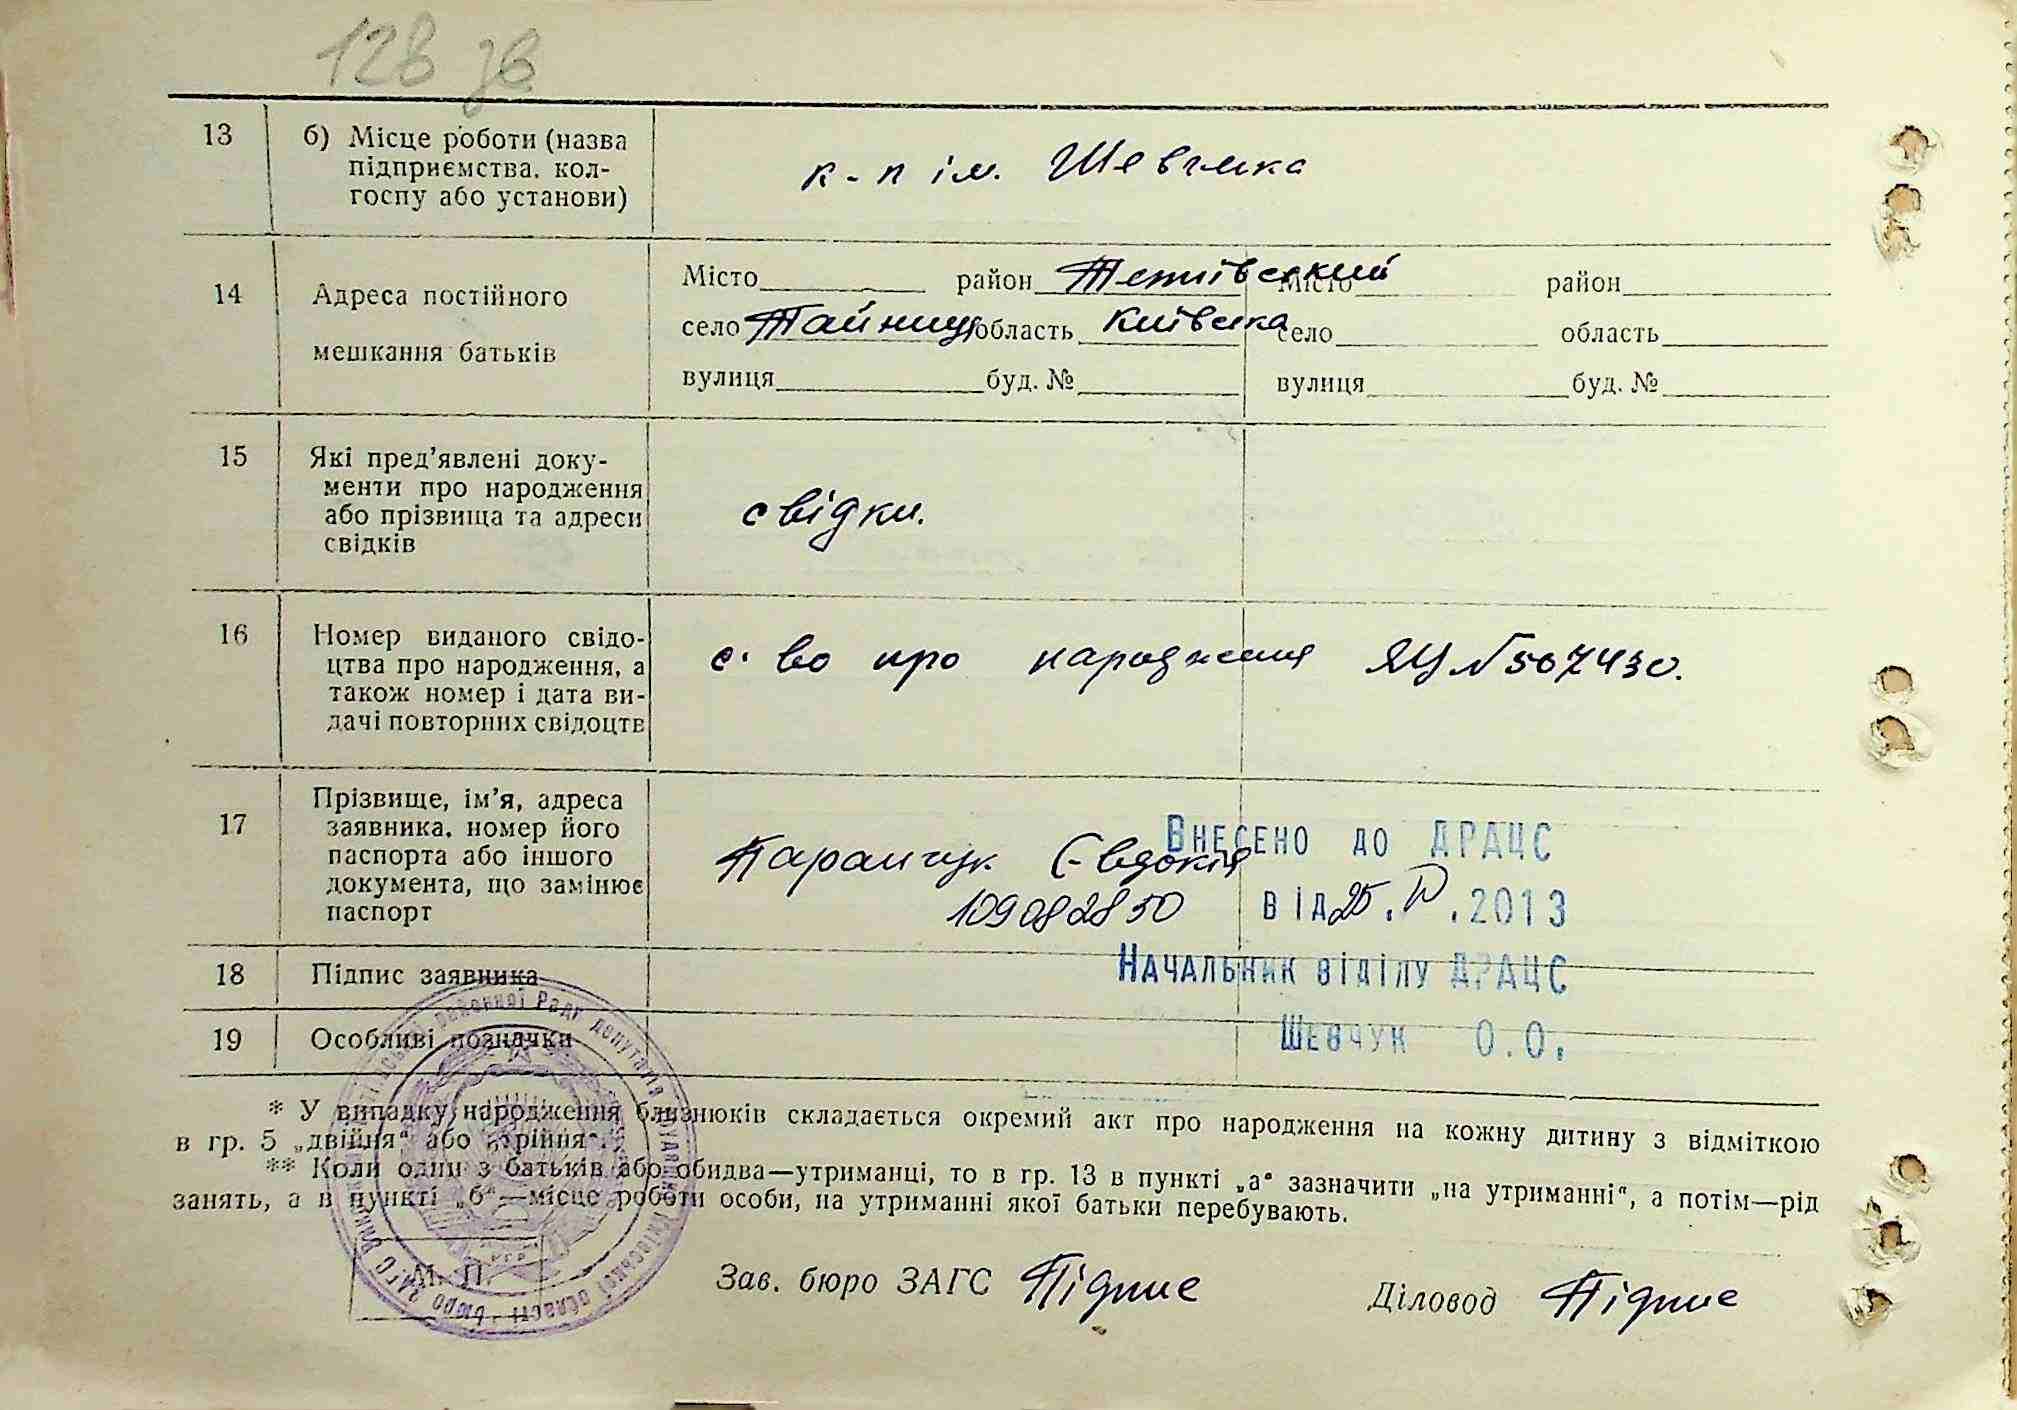 128 зв
13 б) Місце роботи (назва
підприємства, кол-
госпу або установи)
к-п ім. Шевченка
14 Адреса постійного
мешкання батьків
Місто район Тетіївський Місто район
село Тайниця область Київська село область
вулиця буд. № вулиця буд. №
15 Які пред'явлені доку-
менти про народження
або прізвища та адреси
свідків
свідки.
16 Номер виданого свідо-
цтва про народження, а
також номер і дата ви-
дачі повторних свідоцтв
с-во про народження ЯЦ № 567430.
17 Прізвище, ім'я, адреса
заявника, номер його
паспорта або іншого
документа, що замінює
паспорт
Паранчук Євдокія
Внесено до ДРАЦС
від 25. IV .2013
Начальник відділу ДРАЦС
Шевчук О.О.
18 Підпис заявника
19 Особливі позначки
* У випадку народження близнюків складається окремий акт про народження на кожну дитину з відміткою
в гр. 5 „двійня“ або „трійня“.
** Коли один з батьків або обидва—утриманці, то в гр. 13 в пункті „а“ зазначити „на утриманні“, а потім—рід
занять, а в пункті „б“—місце роботи особи, на утриманні якої батьки перебувають.
М. П.
Зав. бюро ЗАГС Підпис
Діловод Підпис